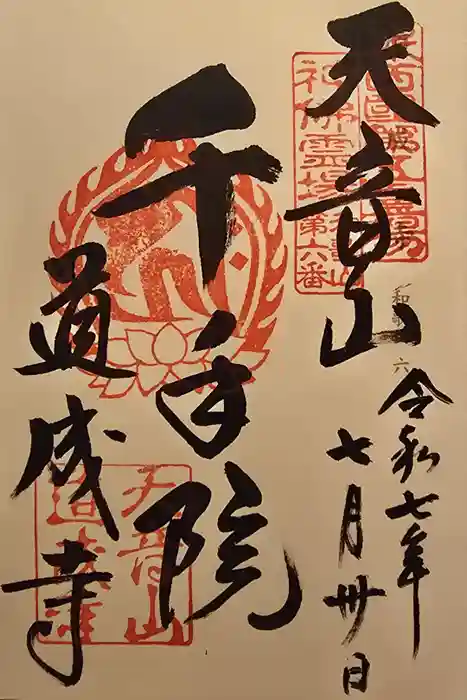 天音山
令和七年
七月卅日
千手院
道成寺
第六番
天音山
道成寺